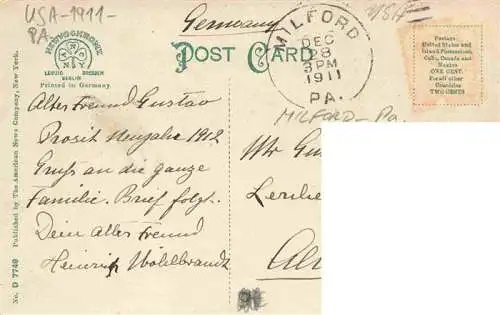 USA-1911-
PA.
Germany
USA
POST CARD
MILFORD
DEC
28
3PM
1911
PA.
MILFORD - Pa.
Postage:
United States and
Island Possessions,
Cuba, Canada and
Mexico
ONE CENT.
For all other
Countries
TWO CENTS
LEIPZIG DRESDEN
BERLIN
Printed in Germany.
Alter Freund Gustav
Prosit Neujahr 1912
Gruss an die ganze
Familie. Brief folgt.
Dein Alter Freund
Heinrich Wohlbrandt
Mr
No. D 7749 Published by The American News Company, New York.